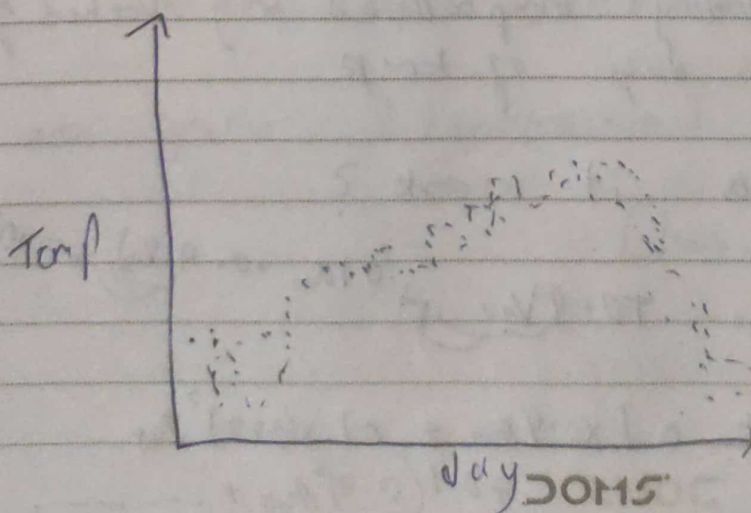 Temp
day
DOMS